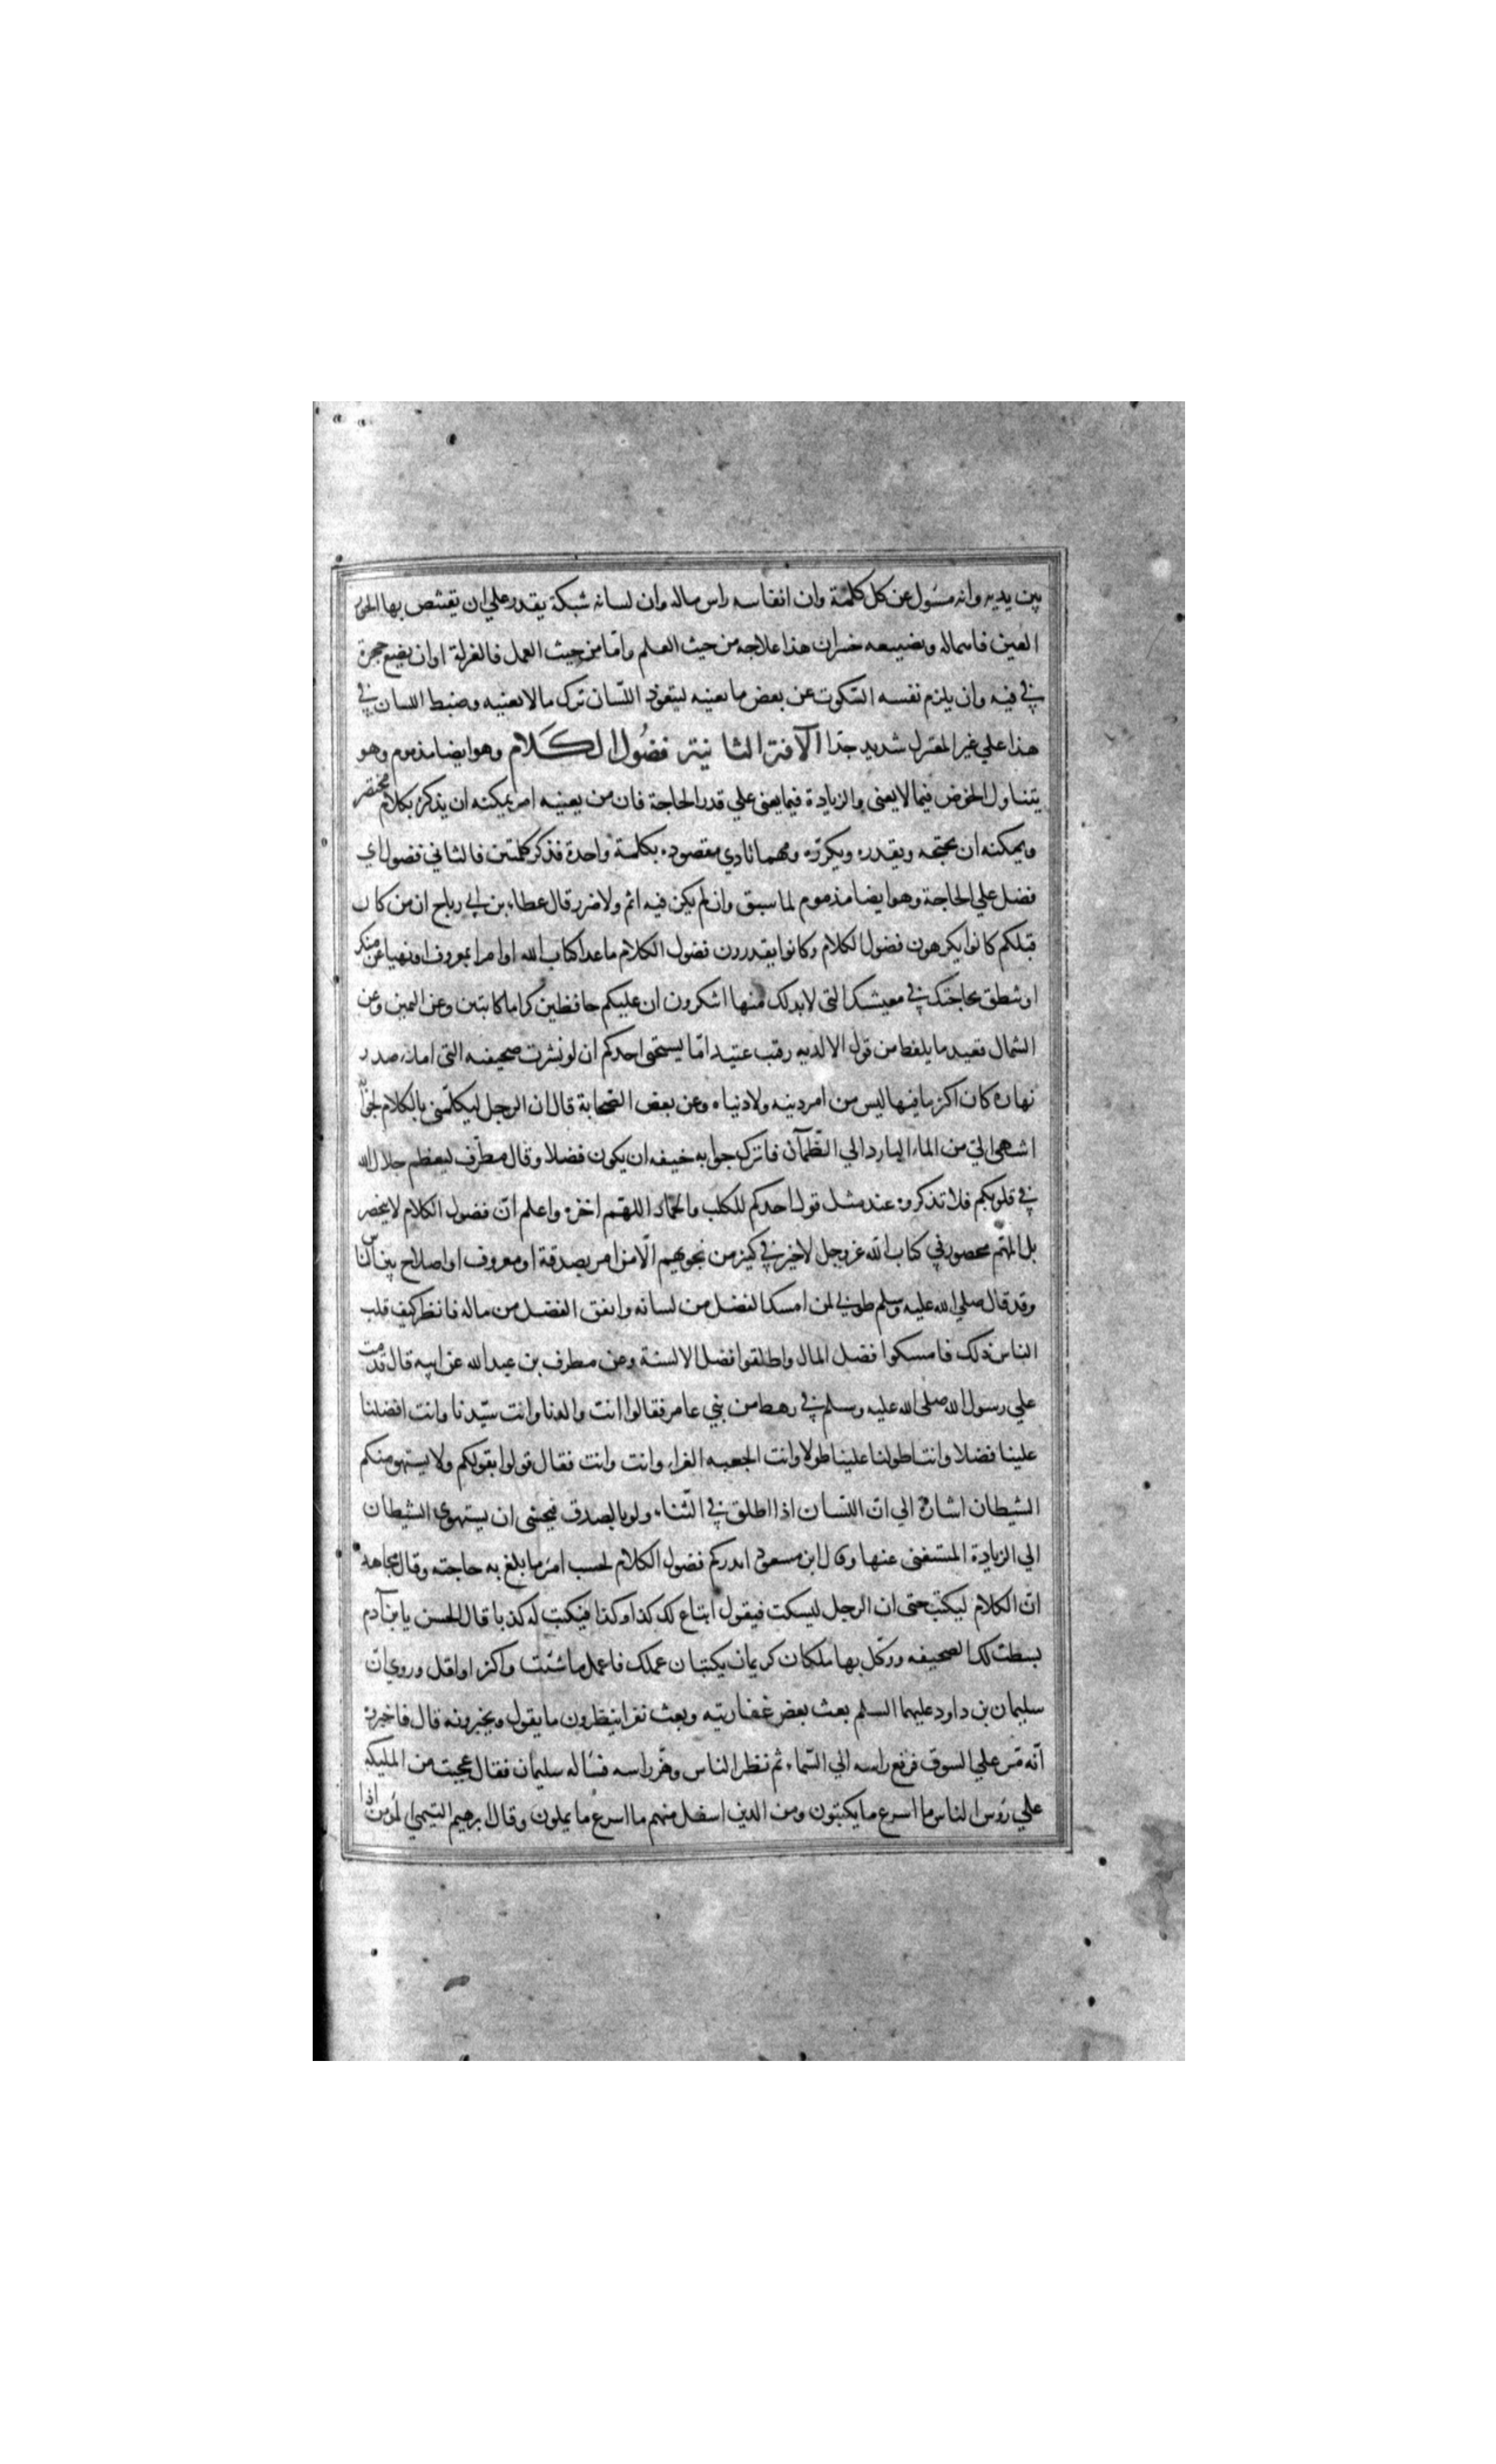 بين يديه وانه مسؤل عن كل كلمة وان انفاسه راس ماله وان لسانه شبكة يقدر علي ان يقتنص بها الحور
العين فاهماله وتضييعه خسران هذا علاجه من حيث العلم واما من حيث العمل فالعزلة او ان يضع حجرة
في فيه وان يلزم نفسه السكوت عن بعض ما يعنيه ليتعود اللسان ترك مالا يعنيه وضبط اللسان في
هذا علي غير المعتزل شديد جدا الآفة الثانية فضول الكلام وهو ايضا مذموم وهو
يتناول الخوض فيما لا يعني والزيادة فيما يعني علي قدر الحاجة فان من يعينه امر يمكنه ان يذكره بكلام مختصر
ويمكنه ان يجتمحه ويقدره ويكرره ومهما تادي مقصوده بكلمة واحدة فذكر كلمتين فالثاني فضول اي
فضل علي الحاجة وهو ايضا مذموم لما سبق وان لم يكن فيه اثم ولا ضرر قال عطاء بن ابي رباح ان من كان
قبلكم كانوا يكرهون فضول الكلام وكانوا يقدرون فضول الكلام ما عدا كتاب الله او امرا بمعروف او نهيا عن منكر
او تنطق بحاجتك في معيشتك التي لابد لك منها اتنكرون ان عليكم حافظين كراما كاتبين وعن اليمين وعن
الشمال قعيد ما يلفظ من قول الا لديه رقيب عتيد اما يستحيي احدكم ان لو نشرت صحيفته التي املاء صدر
نهاره كان اكثر ما فيها ليس من امر دينه ولا دنياه وعن بعض الصحابة قال ان الرجل ليكلمني بالكلام لجوابه
اشهي الي من الماء البارد الي الظمآن فاترك جوابه خيفه ان يكون فضلا وقال مطرف ليعظم جلال الله
في قلوبكم فلا تذكروه عند مثل قول احدكم للكلب والحمار اللهم اخزه واعلم ان فضول الكلام لا ينحصر
بل المهم محصور في كتاب الله عز وجل لا خير في كثير من نجويهم الا من امر بصدقة او معروف او اصلاح بين الناس
وقد قال صلي الله عليه وسلم طوبي لمن امسك الفضل من لسانه وانفق الفضل من ماله فانظر كيف قلب
الناس ذلك فامسكوا فضل المال واطلقوا فضل الالسنة وعن مطرف بن عبد الله عن ابيه قال قدمت
علي رسول الله صلى الله عليه وسلم في رهط من بني عامر فقالوا انت والدنا وانت سيدنا وانت افضلنا
علينا فضلا وانت اطولنا علينا طولا وانت الجعبه الغراء وانت وانت فقال قولوا بقولكم ولا يستهومنكم
الشيطان اشارة الي ان اللسان اذا اطلق في الثناء ولو بالصدق فيخشى ان يستهوي الشيطان
الي الزيادة المستغنى عنها وقال ابن مسعود انذركم فضول الكلام لحسب امرء ما بلغ به حاجته وقال مجاهد
ان الكلام ليكتب حتى ان الرجل ليسكت فيقول ابتاع لك كذا وكذا فيكتب له كذبا قال الحسن يا بن آدم
بسطت لك الصحيفه ووكل بها ملكان كريمان يكتبان عملك فاعمل ما شئت واكثر او اقل وروي ان
سليمان بن داود عليهما السلم بعث بعض عفاريته وبعث نفرا ينظرون ما يقول ويخبرونه قال فاخبروه
انه مر علي السوق فرفع راسه الي السماء ثم نظر الناس وهز راسه فساله سليمان فقال عجبت من المليكه
علي رؤس الناس ما اسرع ما يكتبون ومن الذين اسفل منهم ما اسرع ما يملون وقال ابرهيم التيمي المؤمن اذا